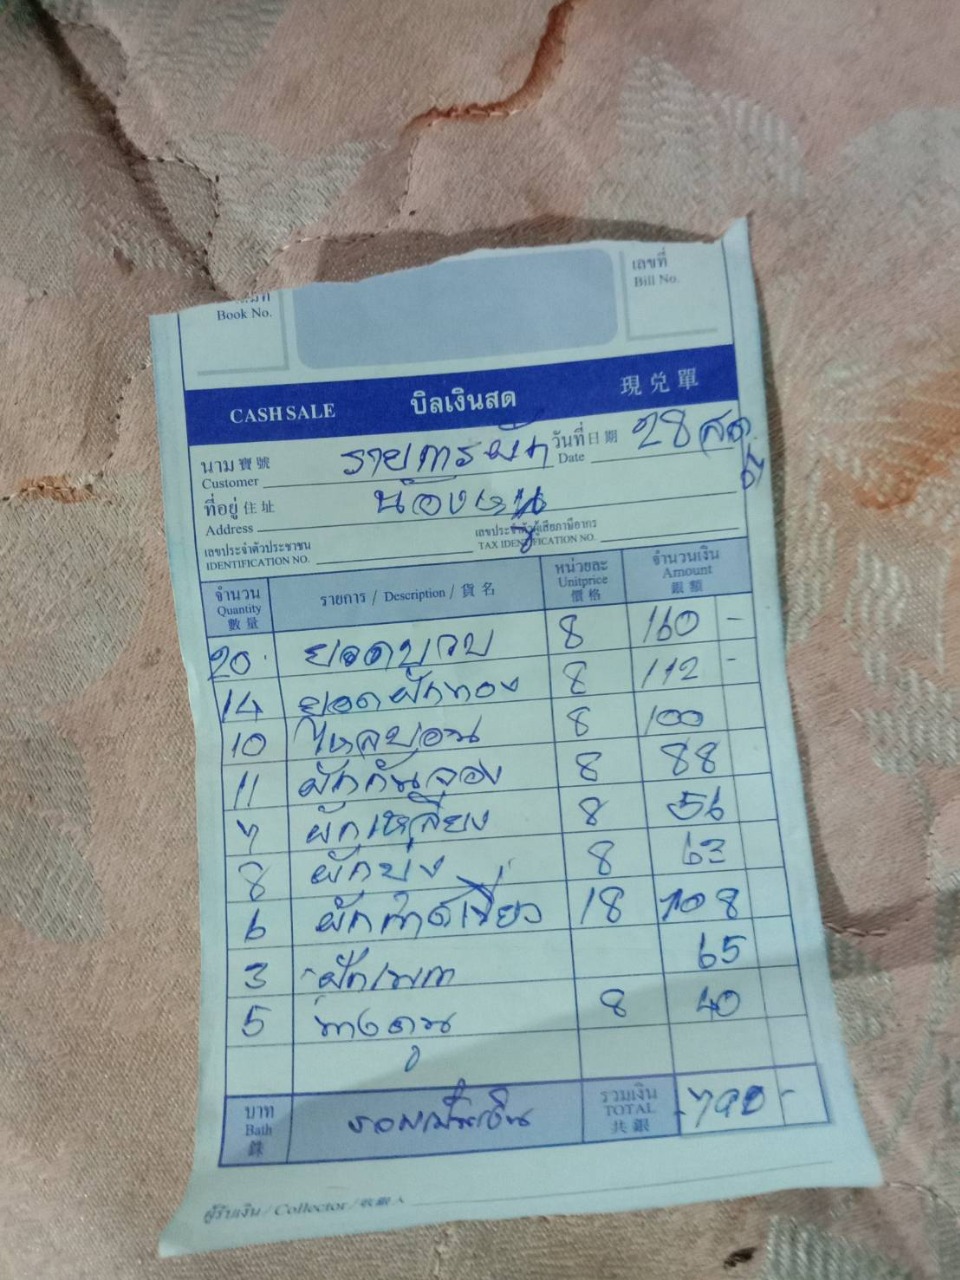 Book No.
เลขที่
Bill No.
CASH SALE บิลเงินสด 現兌單
นาม 寶號 รายการผัก วันที่ 日期 28
Customer Date
ที่อยู่ 住址 น้อง
Address
เลขประจำตัวประชาชน เลขประจำตัวผู้เสียภาษีอากร
IDENTIFICATION NO. TAX IDENTIFICATION NO.
จำนวน รายการ / Description / 貨名 หน่วยละ จำนวนเงิน
Quantity Unitprice Amount
數量 價格 銀額
20 ยอดบวบ 8 160 -
14 ยอดผักทอง 8 112 -
10 ไหลบอน 8 100
11 ผักกันจอง 8 88
7 ผักเหลียง 8 56
8 ผักบุ้ง 8 63
6 ผักกาดเขียว 18 108
3 65
5 8 40
บาท รวมเงิน
Bath TOTAL -790-
銖 共銀
ผู้รับเงิน / Collector / 收銀人